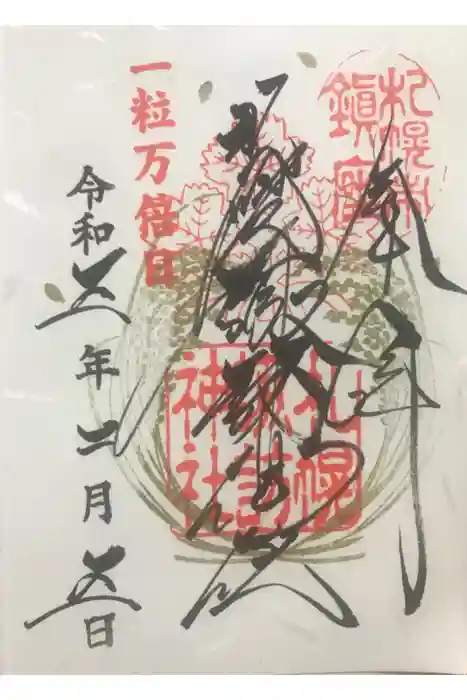 奉拝
札幌市
鎮座
札幌
諏訪
神社
一粒万倍日
令和五年二月五日